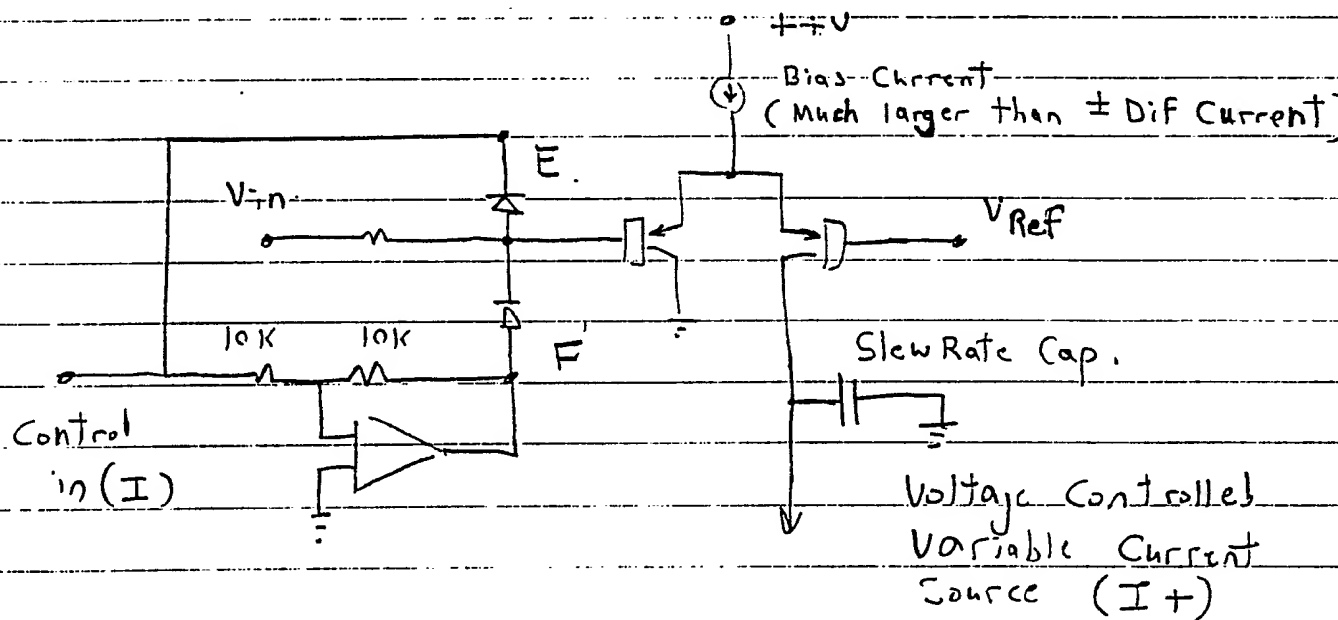 ++V
Bias Current
(Much larger than ± Dif Current)
E
V in
V Ref
10K 10K
F
Slew Rate Cap.
Control
in (I)
Voltage Controlled
Variable Current
Source (I+)